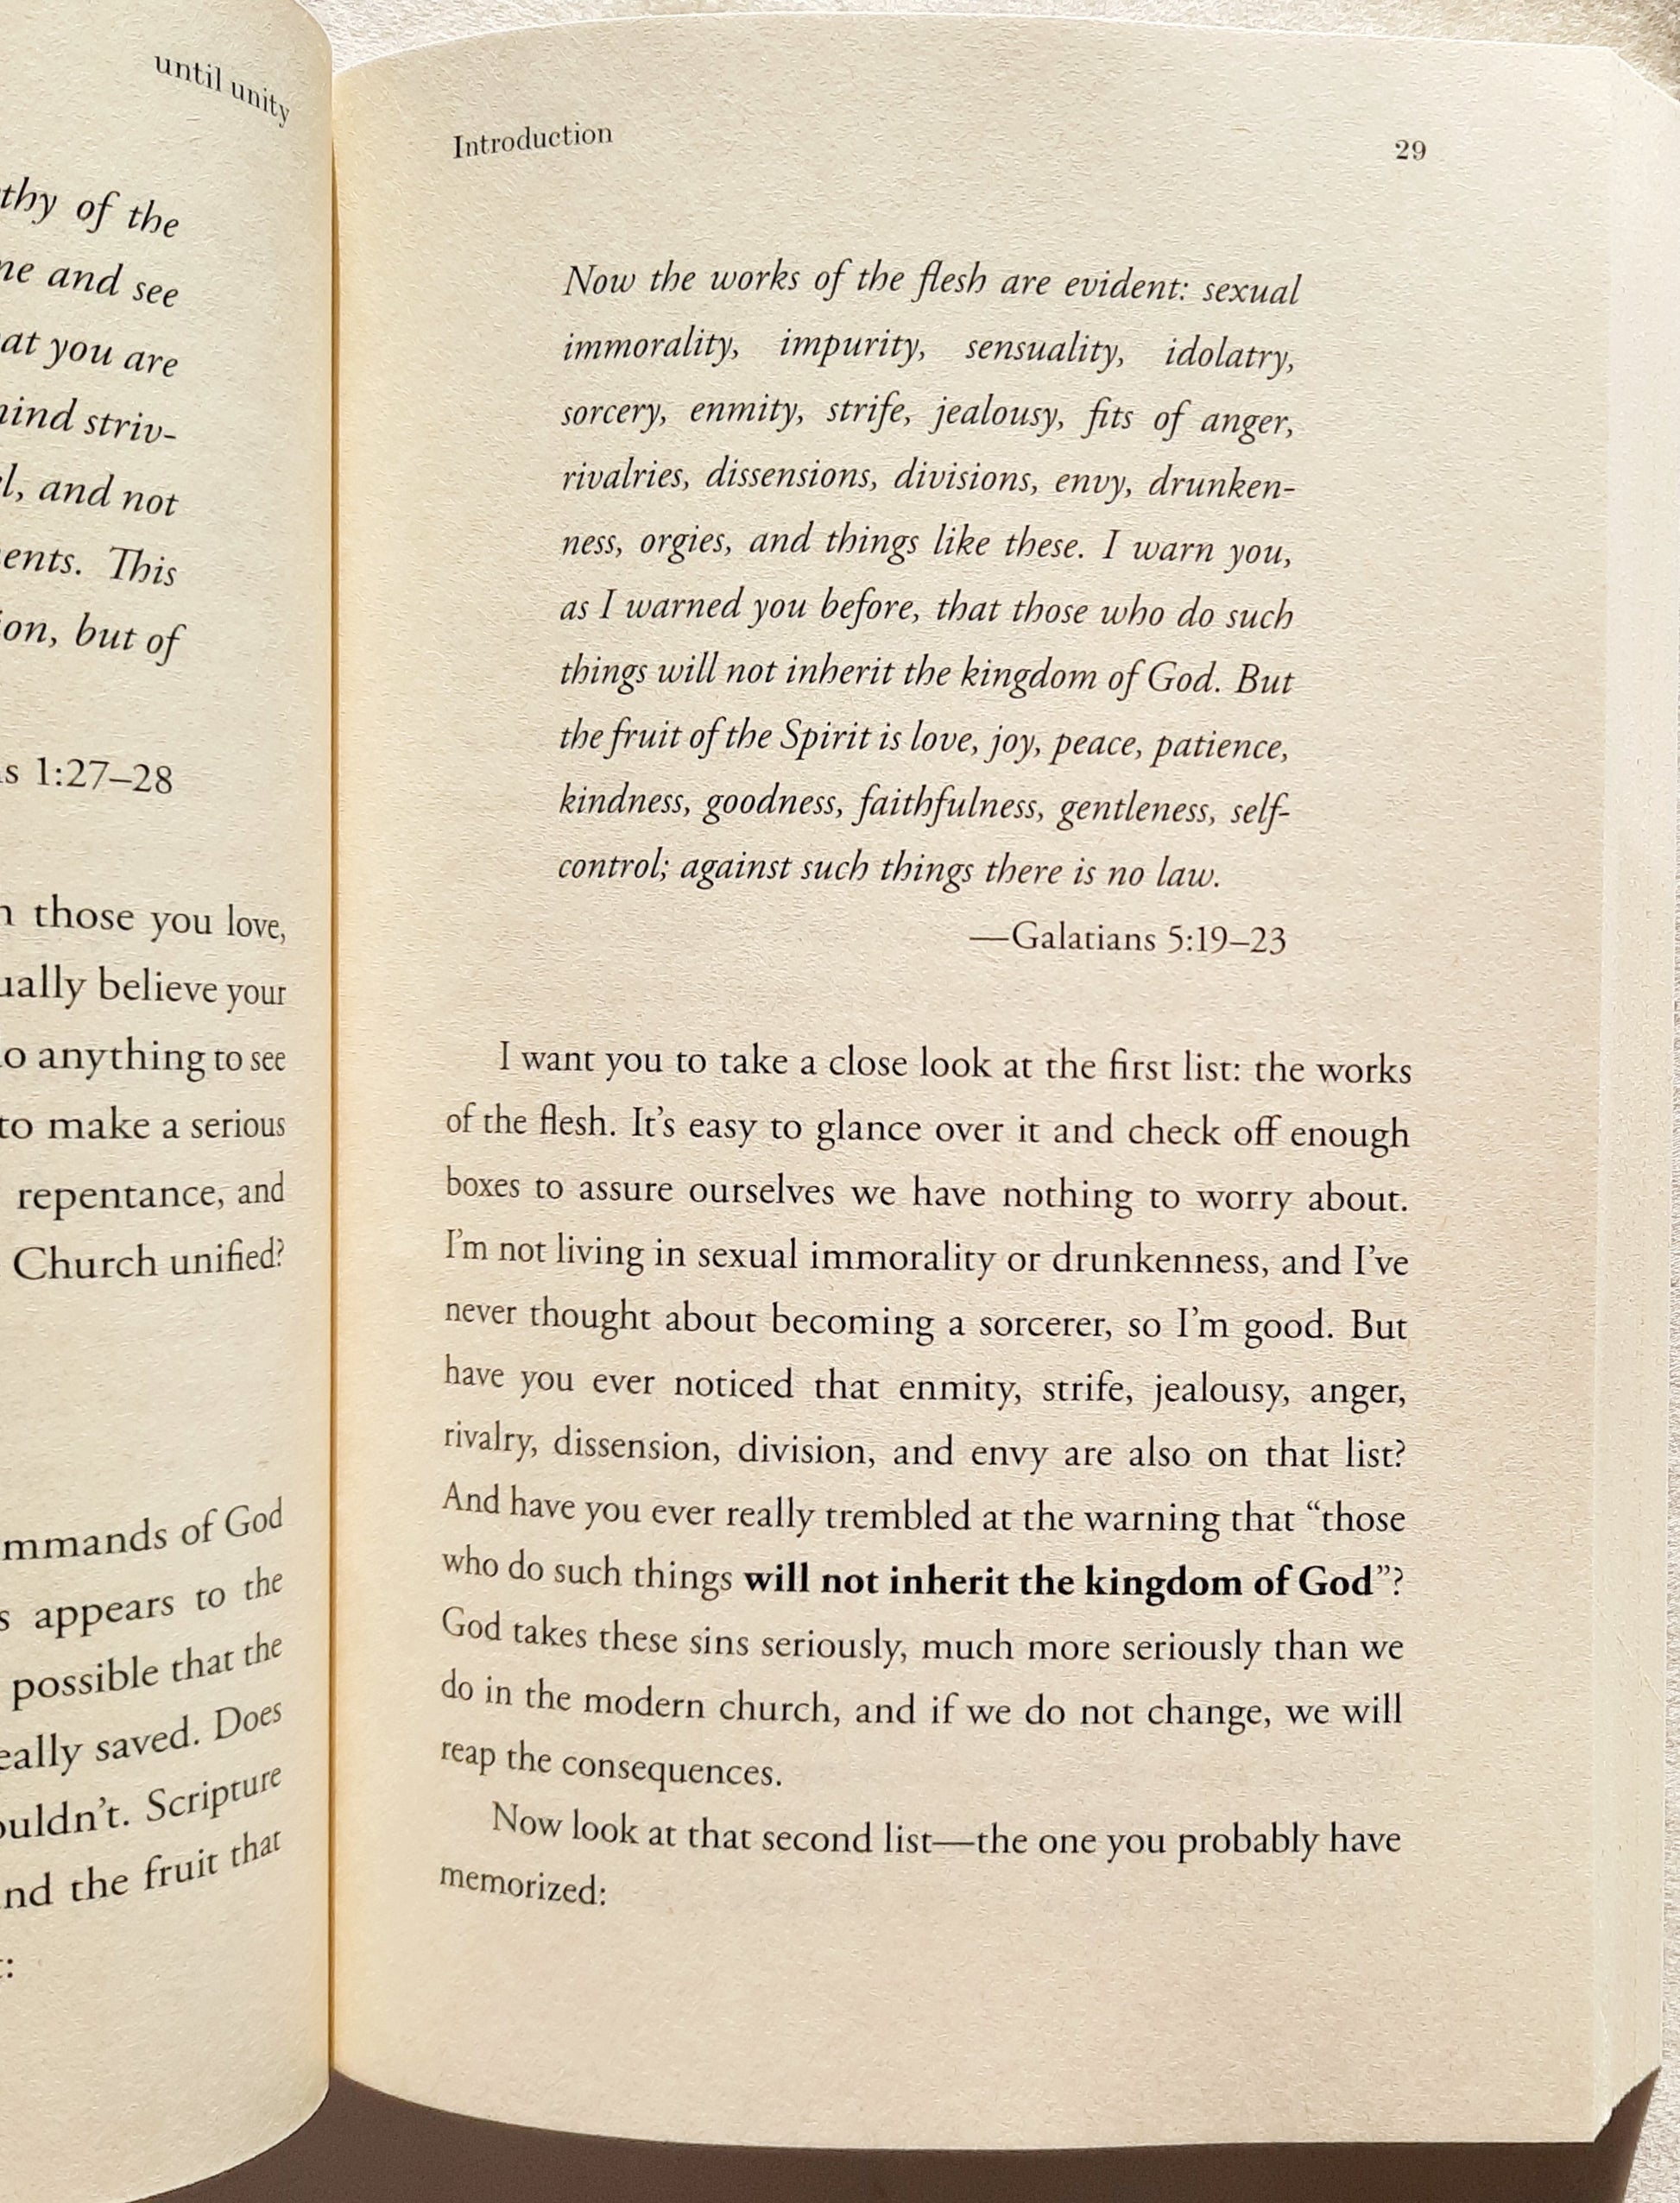 until unity
thy of the
ne and see
at you are
mind striv-
l, and not
ents. This
ion, but of
s 1:27–28
n those you love,
ually believe your
do anything to see
to make a serious
repentance, and
Church unified?
mmands of God
s appears to the
possible that the
eally saved. Does
ouldn't. Scripture
nd the fruit that
t:
Introduction
29
Now the works of the flesh are evident: sexual
immorality, impurity, sensuality, idolatry,
sorcery, enmity, strife, jealousy, fits of anger,
rivalries, dissensions, divisions, envy, drunken-
ness, orgies, and things like these. I warn you,
as I warned you before, that those who do such
things will not inherit the kingdom of God. But
the fruit of the Spirit is love, joy, peace, patience,
kindness, goodness, faithfulness, gentleness, self-
control; against such things there is no law.
—Galatians 5:19–23
I want you to take a close look at the first list: the works
of the flesh. It's easy to glance over it and check off enough
boxes to assure ourselves we have nothing to worry about.
I'm not living in sexual immorality or drunkenness, and I've
never thought about becoming a sorcerer, so I'm good. But
have you ever noticed that enmity, strife, jealousy, anger,
rivalry, dissension, division, and envy are also on that list?
And have you ever really trembled at the warning that “those
who do such things will not inherit the kingdom of God”?
God takes these sins seriously, much more seriously than we
do in the modern church, and if we do not change, we will
reap the consequences.
Now look at that second list—the one you probably have
memorized: